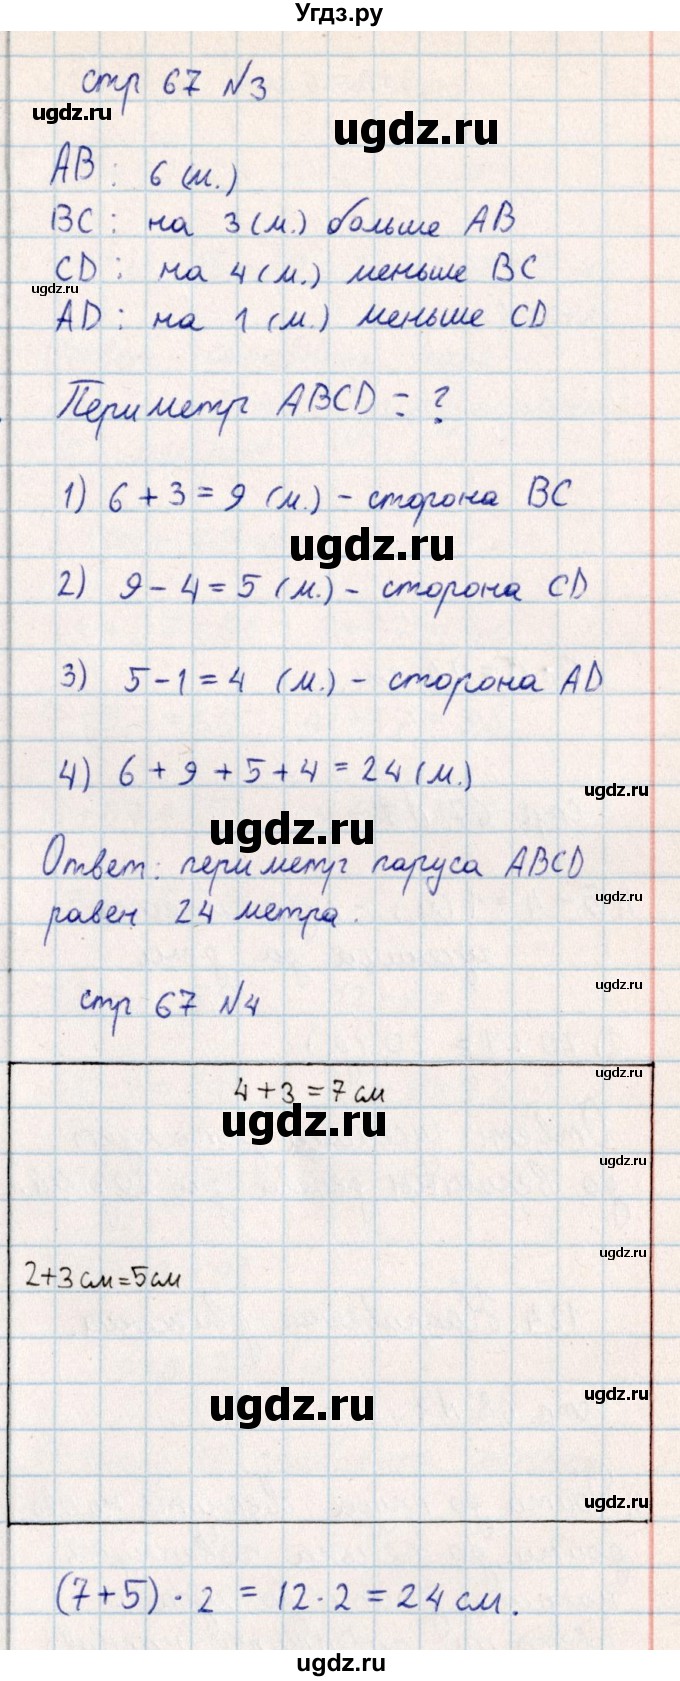 Угдз.ру
стр 67 №3
ugdz.ru
ugdz.ru
AB: 6 (м.)
BC: на 3 (м.) больше AB
CD: на 4 (м.) меньше BC
ugdz.ru
AD: на 1 (м.) меньше CD
Периметр ABCD = ?
1) 6 + 3 = 9 (м.) - сторона BC
ugdz.ru
2) 9 - 4 = 5 (м.) - сторона CD
3) 5 - 1 = 4 (м.) - сторона AD
4) 6 + 9 + 5 + 4 = 24 (м.)
ugdz.ru
ugdz.ru
Ответ: периметр паруса ABCD
ugdz.ru
равен 24 метра.
ugdz.ru
стр 67 №4
ugdz.ru
4 + 3 = 7 см
ugdz.ru
ugdz.ru
ugdz.ru
2+3 см = 5 см
ugdz.ru
ugdz.ru
ugdz.ru
(7+5) · 2 = 12 · 2 = 24 см.
ugdz.ru